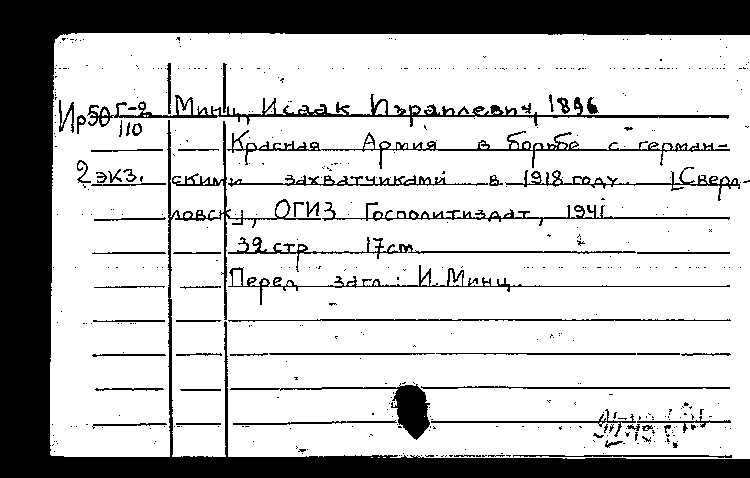 Ир50 Г-2/110 Минц, Исаак Израилевич, 1896
Красная Армия в борьбе с герман-
2 экз. скими захватчиками в 1918 году. [Сверд-
ловск], ОГИЗ Госполитиздат, 1941
32 стр 17 см.
Перед загл.: И. Минц.